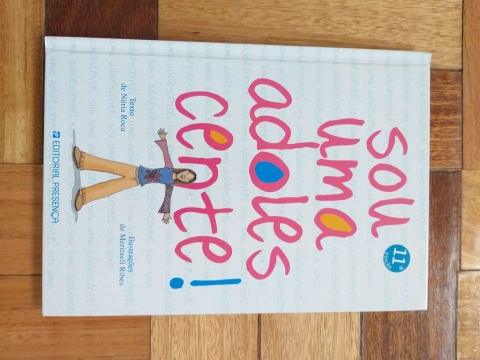 11ª
sou
uma
adoles
cente!
Texto
de Núria Roca
Ilustrações
de Meritxell Ribes
EDITORIAL PRESENÇA